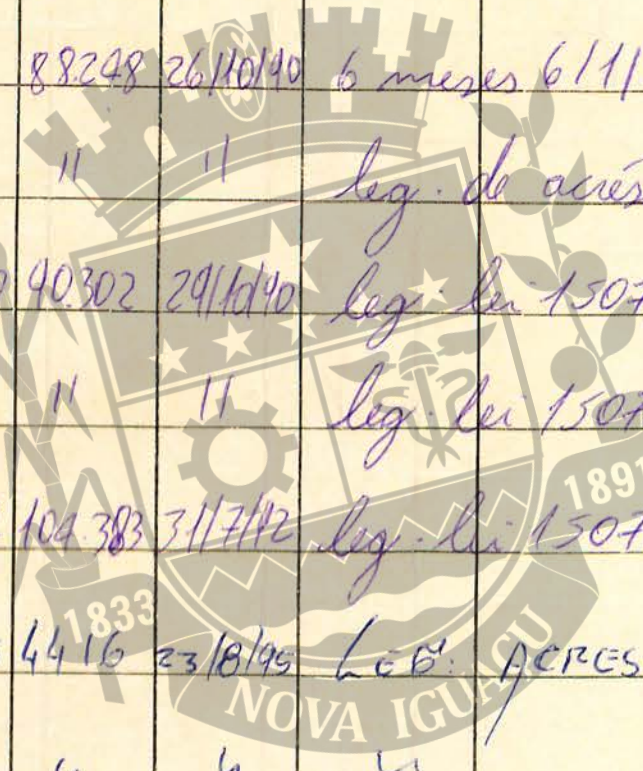 88.248 26/10/90 6 meses 6/1/
" " leg. de acrés
90.302 29/10/90 leg. lei 1507
" " leg. lei 1507
1891
104.383 31/7/92 leg. lei 1507
1833
4416 23/8/95 LEG. ACRES
NOVA IGUAÇU